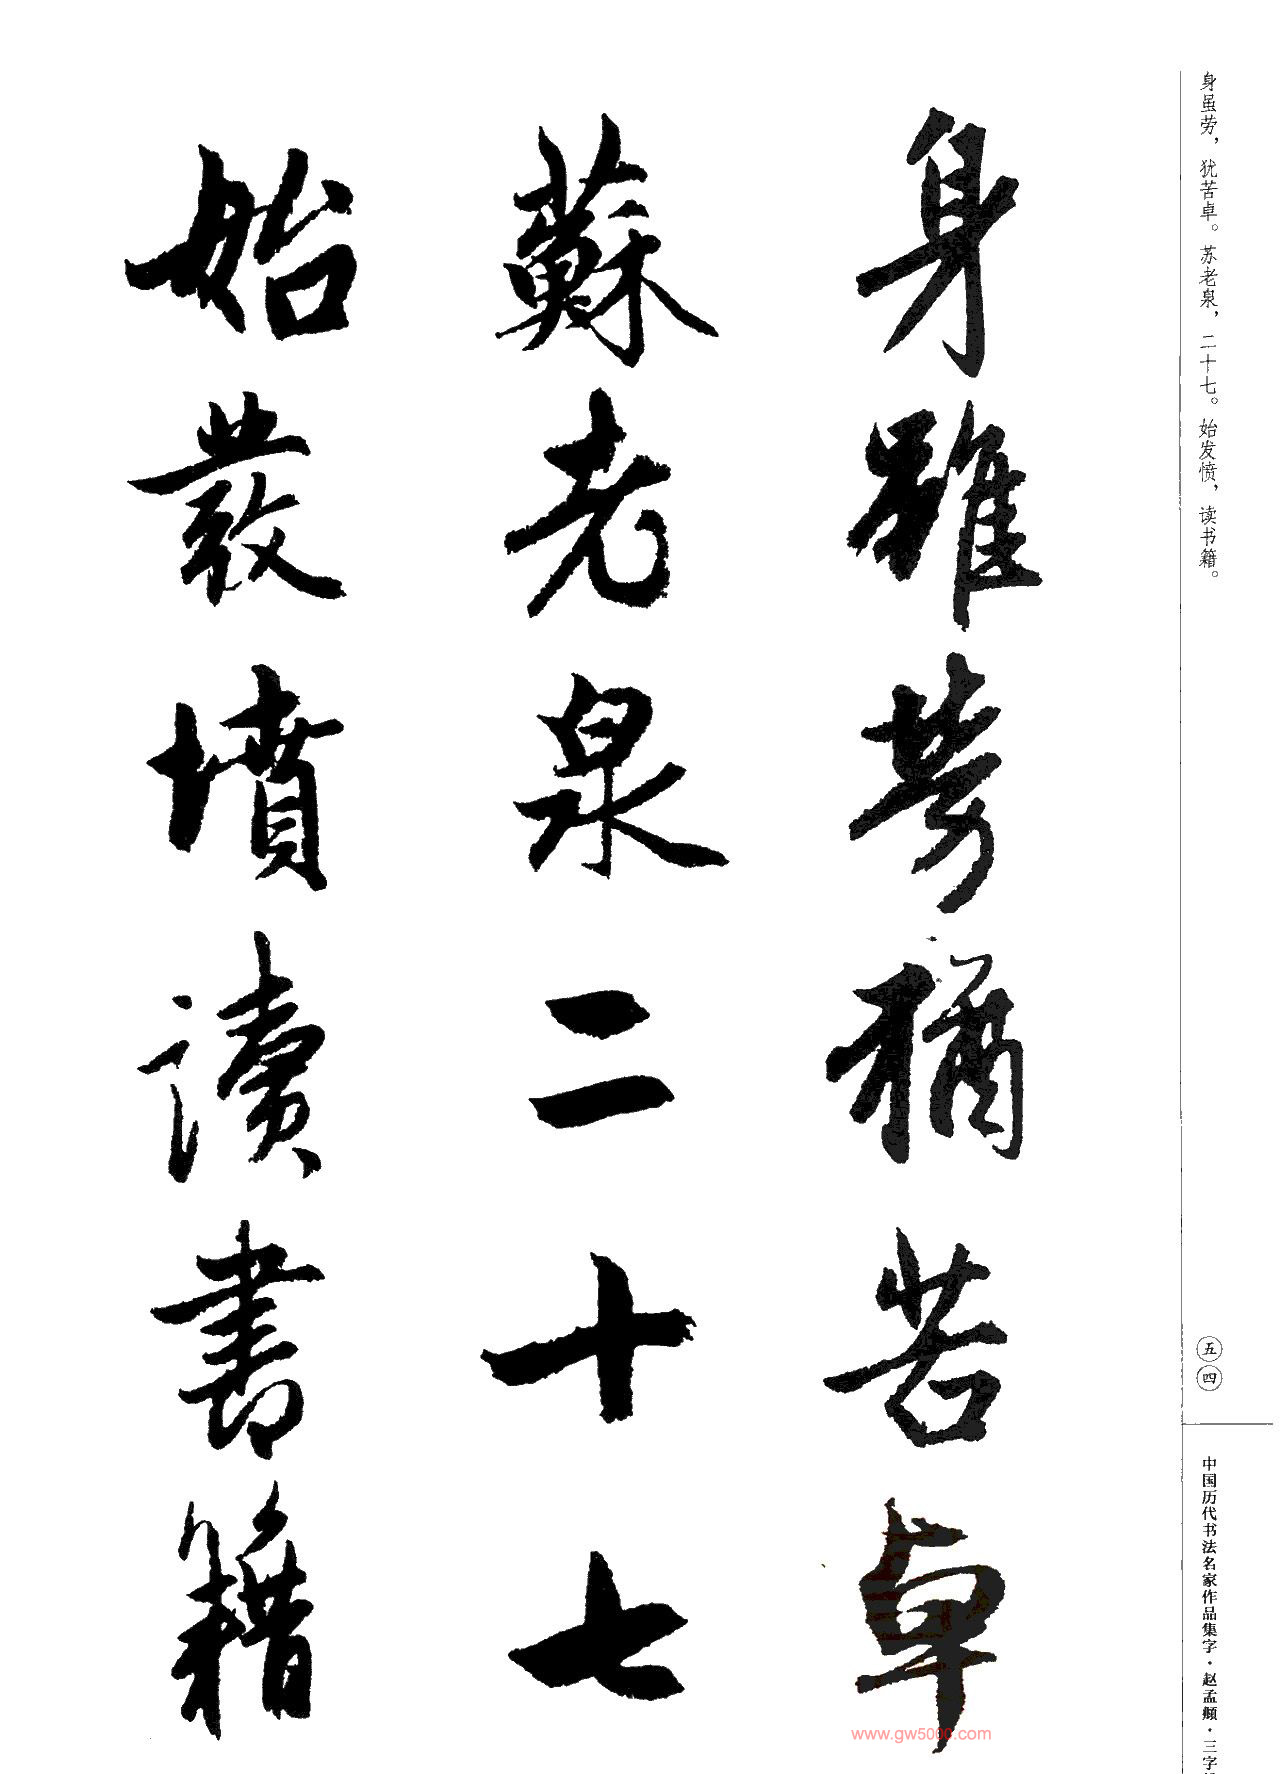 身虽劳，犹苦卓。苏老泉，二十七。始发愤，读书籍。
五四
中国历代书法名家作品集字·赵孟𫖯·三字
身雖勞猶苦卓
蘇老泉二十七
始發墳讀書籍
www.gw5000.com